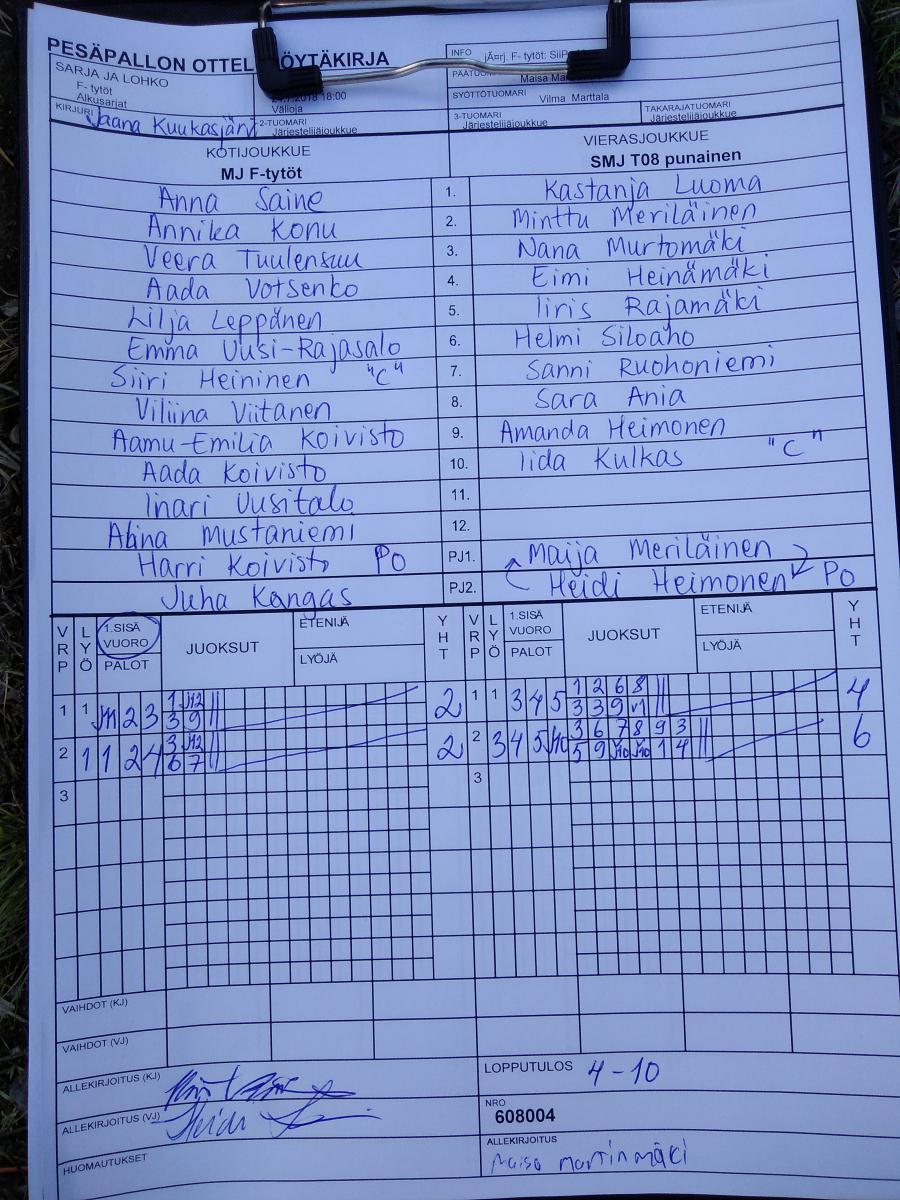 PESÄPALLON OTTEL ÖYTÄKIRJA
SARJA JA LOHKO
F- tytöt
Alkusarjat
18:00
Välioja
INFO
F- tytöt:
Maisa
SYÖTTÖTUOMARI Vilma Marttala
KIRJURI Jaana Kuukasjärvi
2-TUOMARI
Järjestelijäjoukkue
3-TUOMARI
Järjestelijäjoukkue
TAKARAJATUOMARI
Järjestelijäjoukkue
KOTIJOUKKUE
MJ F-tytöt
VIERASJOUKKUE
SMJ T08 punainen
Anna Saine 1. Kastanja Luoma
Annika Konu 2. Minttu Meriläinen
Veera Tuulensuu 3. Nana Murtomäki
Aada Votsenko 4. Eimi Heinämäki
Lilja Leppänen 5. Iiris Rajamäki
Emma Uusi-Rajasalo 6. Helmi Siloaho
Siiri Heininen "C" 7. Sanni Ruohoniemi
Viliina Viitanen 8. Sara Ania
Aamu-Emilia Koivisto 9. Amanda Heimonen
Aada Koivisto 10. Iida Kulkas "C"
Inari Uusitalo 11.
Alina Mustaniemi 12.
Harri Koivisto PO PJ1. Maija Meriläinen
Juha Kangas PJ2. Heidi Heimonen PO
VRP LYÖ 1.SISÄ VUORO PALOT JUOKSUT ETENIJÄ LYÖJÄ YHT VRP LYÖ 1.SISÄ VUORO PALOT JUOKSUT ETENIJÄ LYÖJÄ YHT
1 1 2 3 1 2 1 1 3 4 5 1 2 6 8 4
3 9 3 3 9
2 1 1 2 4 3 2 2 3 4 5 3 6 7 8 9 3 6
6 7 5 9 1 4
3 3
VAIHDOT (KJ)
VAIHDOT (VJ)
ALLEKIRJOITUS (KJ)
LOPPUTULOS 4-10
ALLEKIRJOITUS (VJ) Heidi
NRO
608004
HUOMAUTUKSET
ALLEKIRJOITUS
Maisa Martinmäki